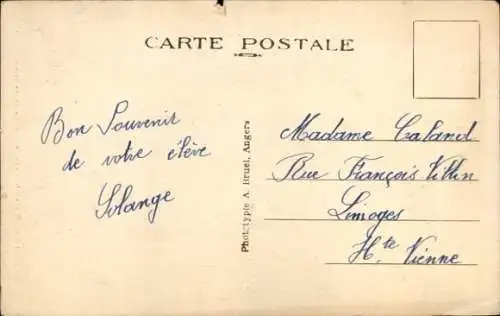 CARTE POSTALE
Bon Souvenir
de votre élève
Solange
Phototypie A. Bruel, Angers
Madame
Rue François
Limoges
Hte Vienne